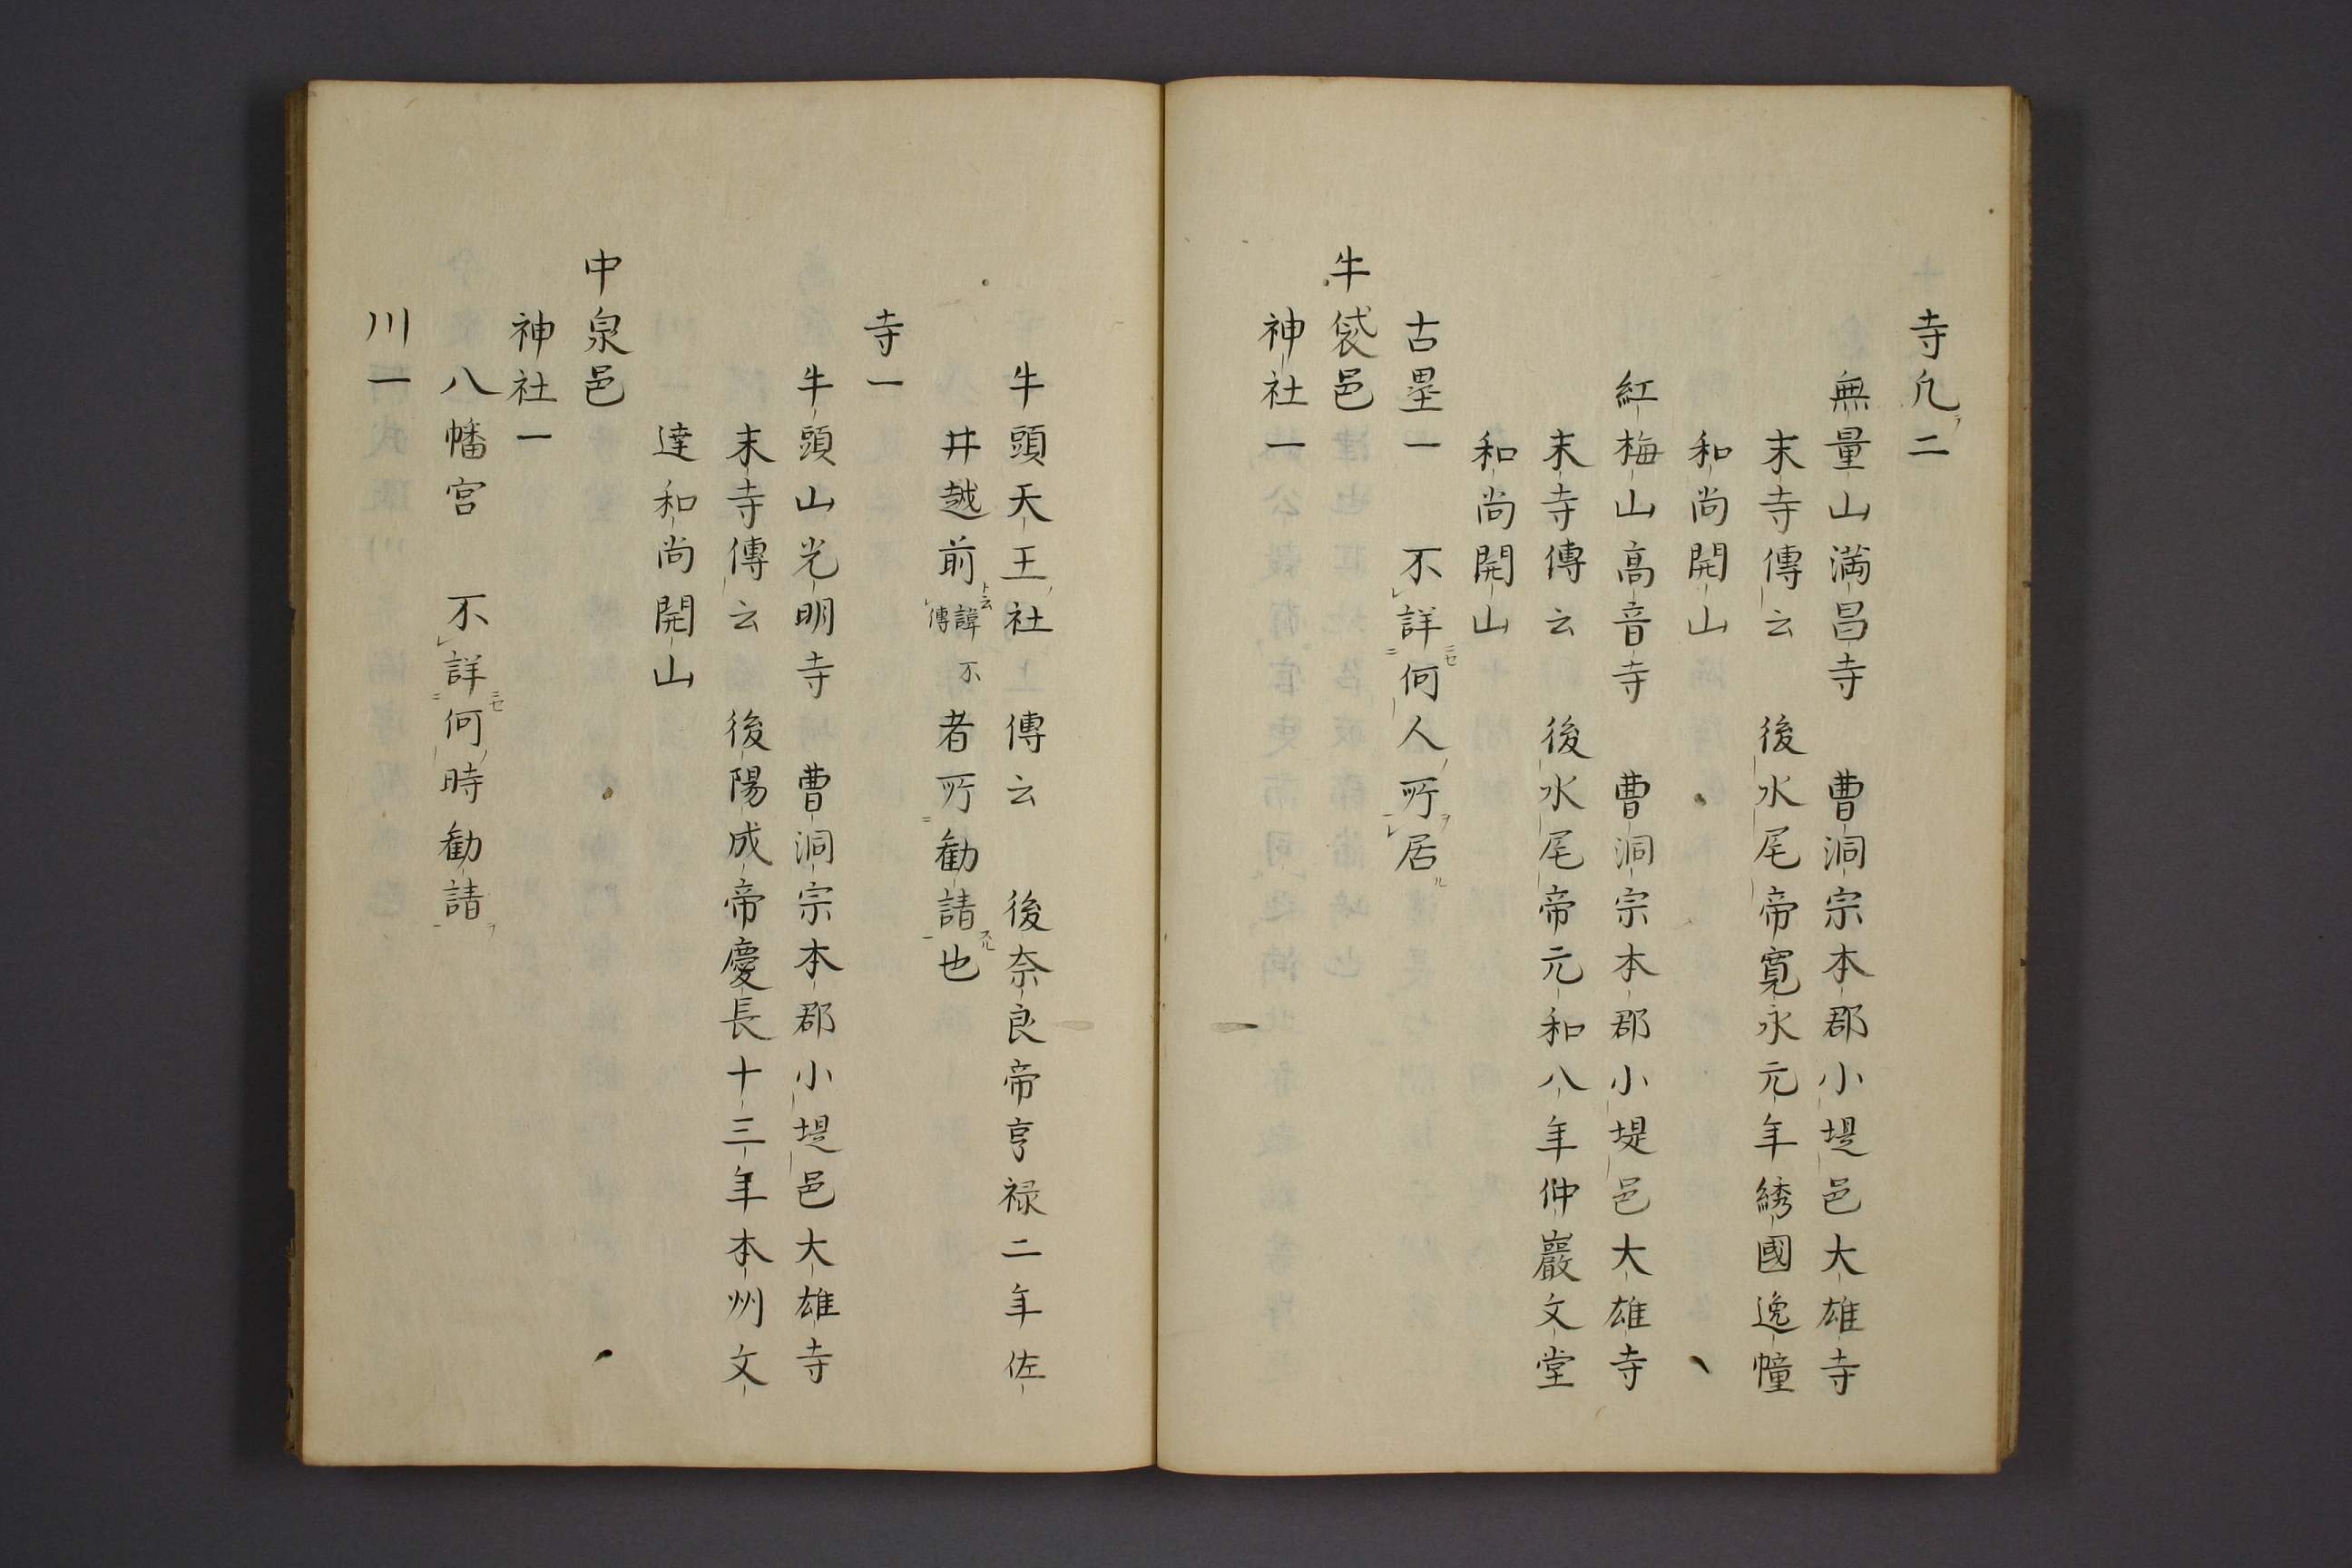 寺凢二
無量山満昌寺 曹洞宗本郡小堤邑大雄寺
末寺傳云 後水尾帝寛永元年綉國逸幢
和尚開山
紅梅山高音寺 曹洞宗本郡小堤邑大雄寺
末寺傳云 後水尾帝元和八年仲巖文堂
和尚開山
古壘一 不詳何人所居
牛袋邑
神社一
牛頭天王社 傳云 後奈良帝亨禄二年佐
井越前諱不傳ト云者所勧請スル也
寺一
牛頭山光明寺 曹洞宗本郡小堤邑大雄寺
末寺傳云 後陽成帝慶長十三年本州文
達和尚開山
中泉邑
神社一
八幡宮 不詳何時勧請
川一